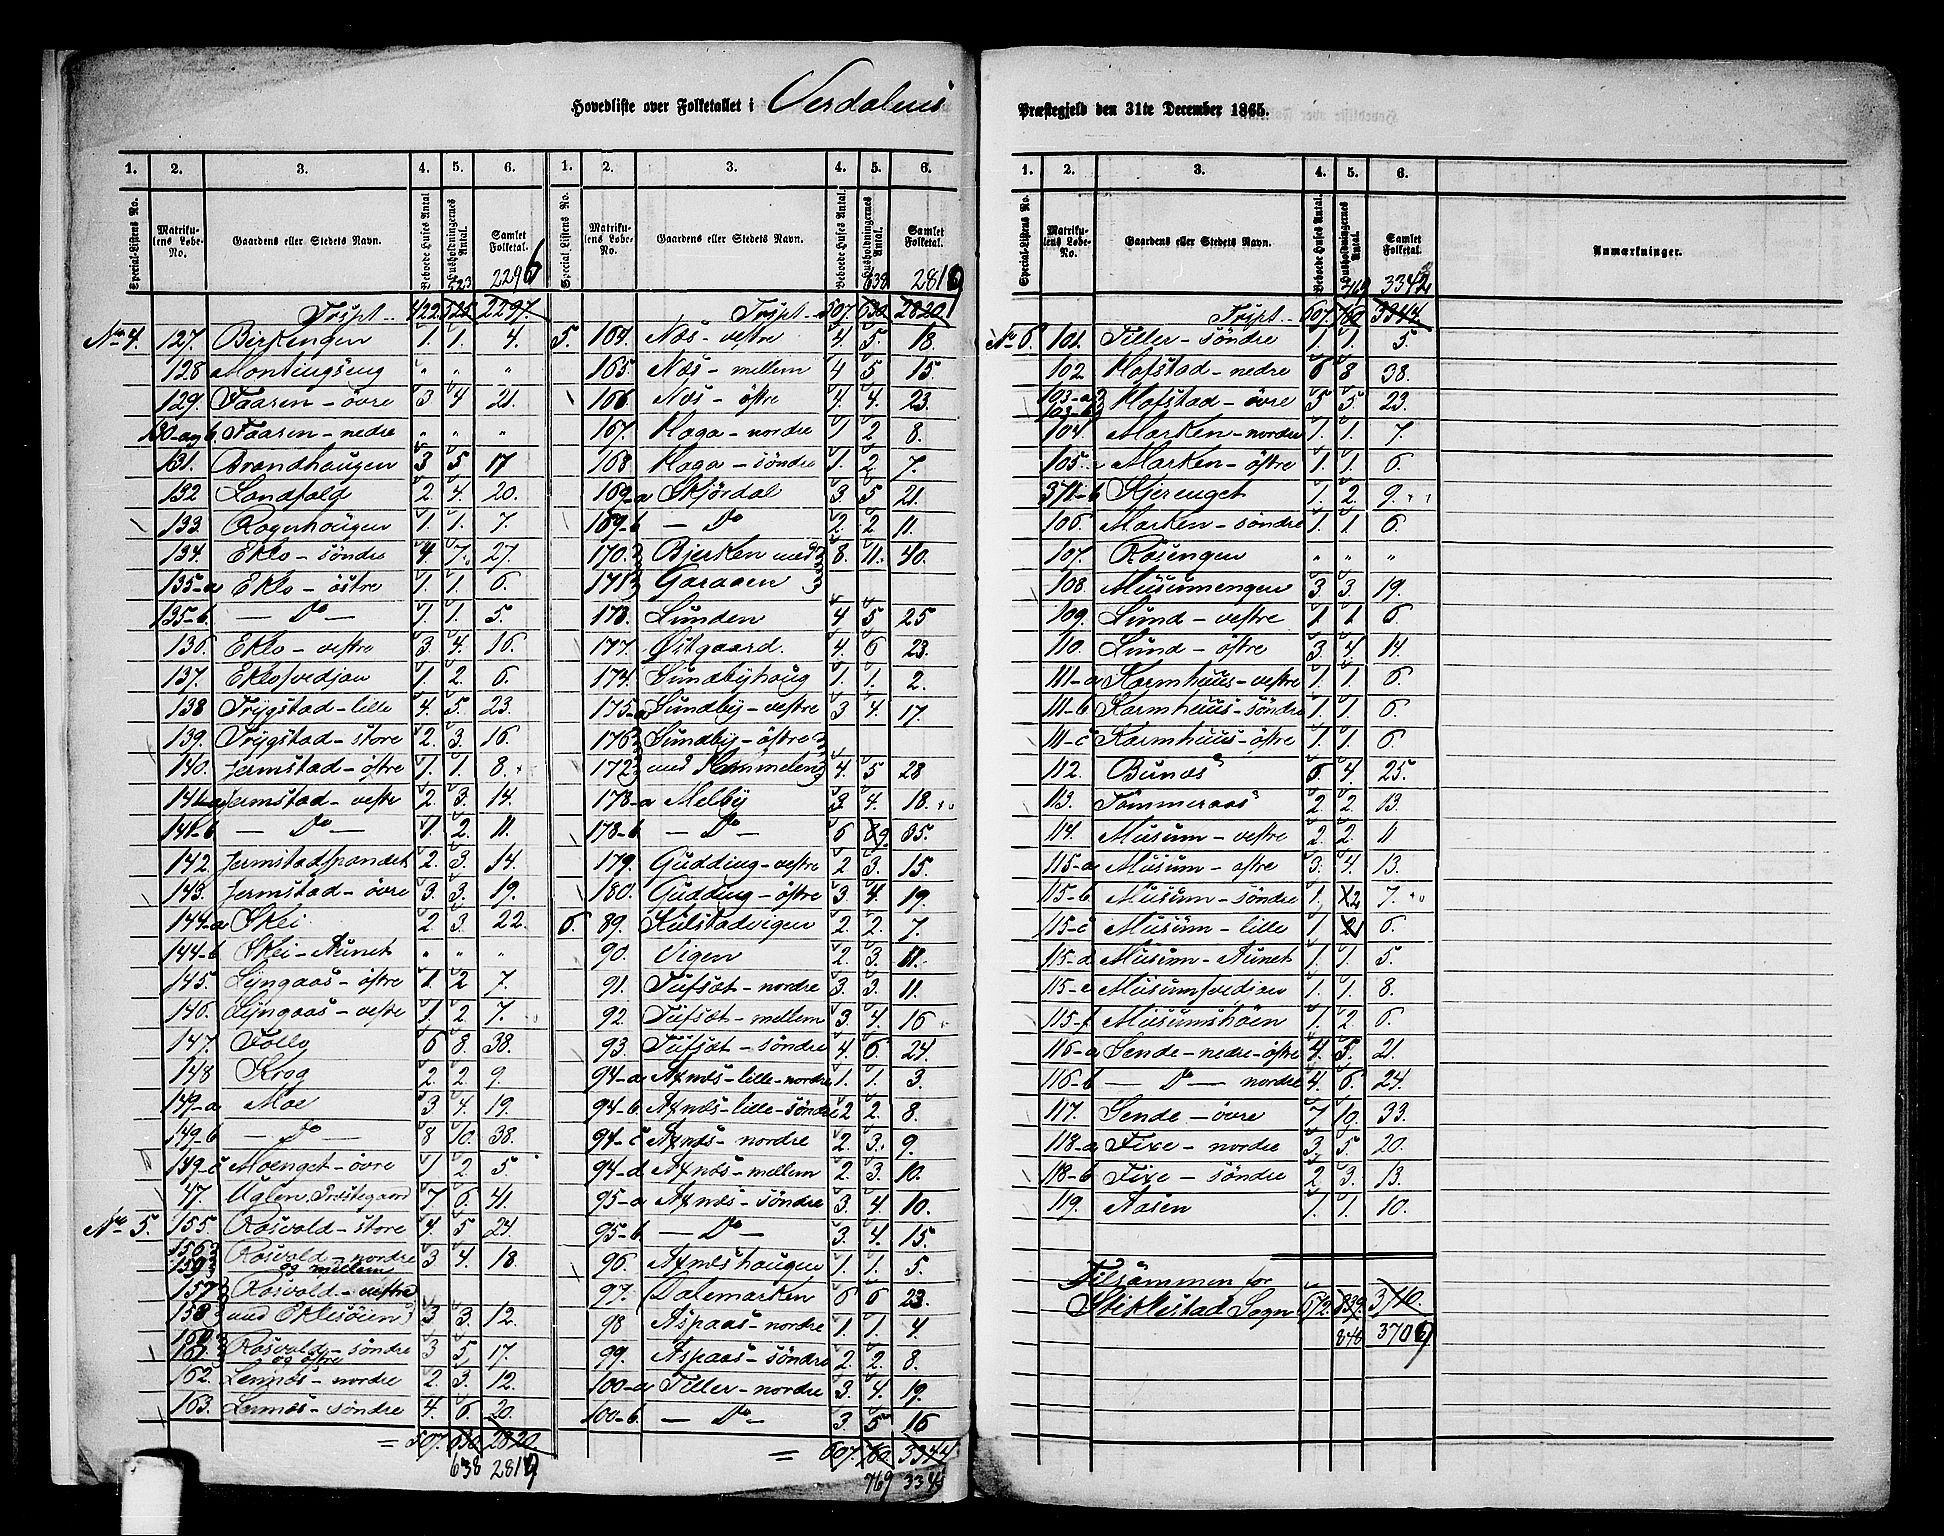 Hovedliste over Folketallet i Verdalens
Præstegjeld den 31te December 1865.
1. 2. 3. 4. 5. 6.
Special-Listens No. Matrikulens Løbe-No. Gaardens eller Stedets Navn. Beboede Huses Antal. Husholdningernes Antal. Samlet Folketal.
523 2296
Trspt. 422. 520. 2297.
No 4. 127. Birkengen 1. 1. 4.
128 Montingseng " " "
129. Faaren - övre 3 4 21.
130-a og b. Faaren - nedre " " "
131. Brandhaugen 3 5 17
132 Landfald 2. 4. 20.
133. Ragnhaugen 1. 1. 7.
134. Eklo - söndre 4 7. 27.
135-a Eklo - östre 1. 1. 6.
135-b. - Do - 1. 1. 5.
136. Eklo - vestre 3. 4. 16.
137. Eklosvedjan 1. 2. 6.
138 Trygstad - lille 4. 5. 23.
139. Trygstad - store 2. 3. 16.
140. Jermstad - östre 1. 1. 8.
141-a Jermstad - vestre 2. 3. 14.
141-b - Do - 1. 2. 11.
142. Jermstadspandet 2. 3. 14
143. Jermstad - övre 3. 3. 19.
144-a Skei 2 3. 22.
144-b Skei - Aunet " " "
145. Lyngaas - östre 1. 2 7.
146. Lyngaas - vestre 1. 2 7.
147. Follo 6 8. 38.
148 Krag 2. 2. 9.
149-a Moe 3 4. 19.
149-b - Do - 8 10. 38.
149-c Moenget - övre 1 2. 5
47. Uglen, Præstegaard 7 6. 41.
No 5. 155 Rosvold - store 4. 5 24.
156 159 Rosvold - nordre og mellem 3 4. 18.
157 Rosvold - vestre
158 med Eklesöien 3 3. 12.
160 161. Rosvold - söndre og östre 3 5. 17.
162. Lennæs - nordre 2. 3. 12.
163. Lennæs - söndre 4. 6. 20.
= 507. 630. 2820.
638 2819
1. 2. 3. 4. 5. 6.
Special-Listens No. Matrikulens Løbe-No. Gaardens eller Stedets Navn. Beboede Huses Antal. Husholdningernes Antal. Samlet Folketal.
638 2819
Trspt. 507. 630 2820
5. 164. Næs - vestre 4. 5. 18.
165. Næs - mellem 4 5 15.
166. Næs - östre 4 4. 23.
167. Haga - nordre 1 2 8.
168. Haga - söndre 1. 2. 7.
169-a Skjördal 3. 5 21.
169-b - Do 2. 2 11.
170. Bjerken med 8. 11. 40.
171 Garaaen
173. Lunden 4 5 25
177. Østgaard. 4. 6 23.
174. Sundbyhaug 1. 1. 2.
175-a Sundby - vestre 3 4. 17.
176 Sundby - östre
172 med Hammelen 4. 5 28
178-a Melby 3 4. 18.
178-b. - Do - 6 89. 35.
179. Gudding - vestre 2 3. 15.
180. Gudding - östre 3 4. 19.
6. 89. Hulstadvigen 2. 2. 7.
90. Vigen 2 3. 11.
91. Tufsæt - nordre 3. 3. 11.
92. Tufsæt - mellem 3. 4. 16
93. Tufsæt - söndre 4. 6. 24.
94-a Axnæs - lille - nordre 1. 1. 3.
94-b. Axnæs - lille - söndre 2 2. 8.
94-c Axnæs - nordre 2. 3. 9.
94-d Axnæs - mellem 2. 3. 10.
95-a Axnæs - söndre 3. 4. 10.
95-b - Do - 3. 4. 15.
96. Axnæshaugen 1. 1. 5.
97. Dalemarken 6 6 23.
98 Aspaas - nordre 1. 1. 4.
99. Aspaas - söndre 2. 2. 8.
100-a Tiller - nordre 3. 4. 19.
100-b. - Do - 3. 5 16
= 607. 760. 3344.
769 334
1. 2. 3. 4. 5. 6.
Special-Listens No. Matrikulens Løbe-No. Gaardens eller Stedets Navn. Beboede Huses Antal. Husholdningernes Antal. Samlet Folketal. Anmærkninger.
769 3342
Trspt. 607. 760 3344.
No 6. 101. Tiller - söndre 1. 1. 5.
102. Hofstad - nedre 6 8 38.
103-a 103-b Hofstad - övre 5 5. 23.
104. Marken - nordre 1. 1. 7.
105. Marken - östre 1. 1. 6.
371-b Kjerenget 1. 2. 9.
106. Marken - söndre 1. 1 6.
107. Rosengen " " "
108. Musumengen 3 3. 19.
109. Lund - vestre 1 1 6
110. Lund - östre 3. 4. 14.
111-a Karmhuus - vestre 1. 1 6
111-b Karmhuus - söndre 1. 1. 6.
111-c Karmhuus - östre 1. 1. 6.
112. Bunæs 6. 4. 25.
113. Tömmeraas 2. 2. 13.
114. Musum - vestre 2. 2. 11
115-a Musum - östre 3. 4. 13.
115-b Musum - söndre 1. 2 7.
115-c Musum - lille 1 21 6.
115-d Musum - Aunet 1. 1. 5.
115-e Musumsvedjan 1. 1. 8.
115-f Musumshöen 1. 2. 6.
116-a Sende - nedre - östre 4. 5. 21.
116-b - Do - nordre 4. 6. 24.
117. Sende - övre 7 10. 33.
118-a Fixe - nordre 3. 5. 20.
118-b Fixe - söndre 2 3. 13.
119. Aasen 1. 1. 10.
Tilsammen for
Stiklestad Sogn 672. 839. 3710.
848 3709